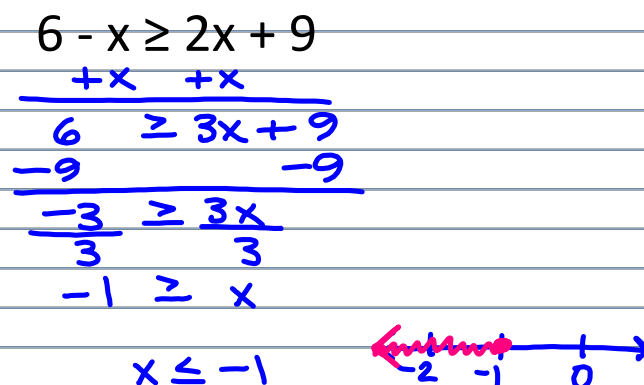 6 - x ≥ 2x + 9
+x +x
6 ≥ 3x + 9
-9 -9
-3 ≥ 3x
3 3
-1 ≥ x
x ≤ -1
-2 -1 0